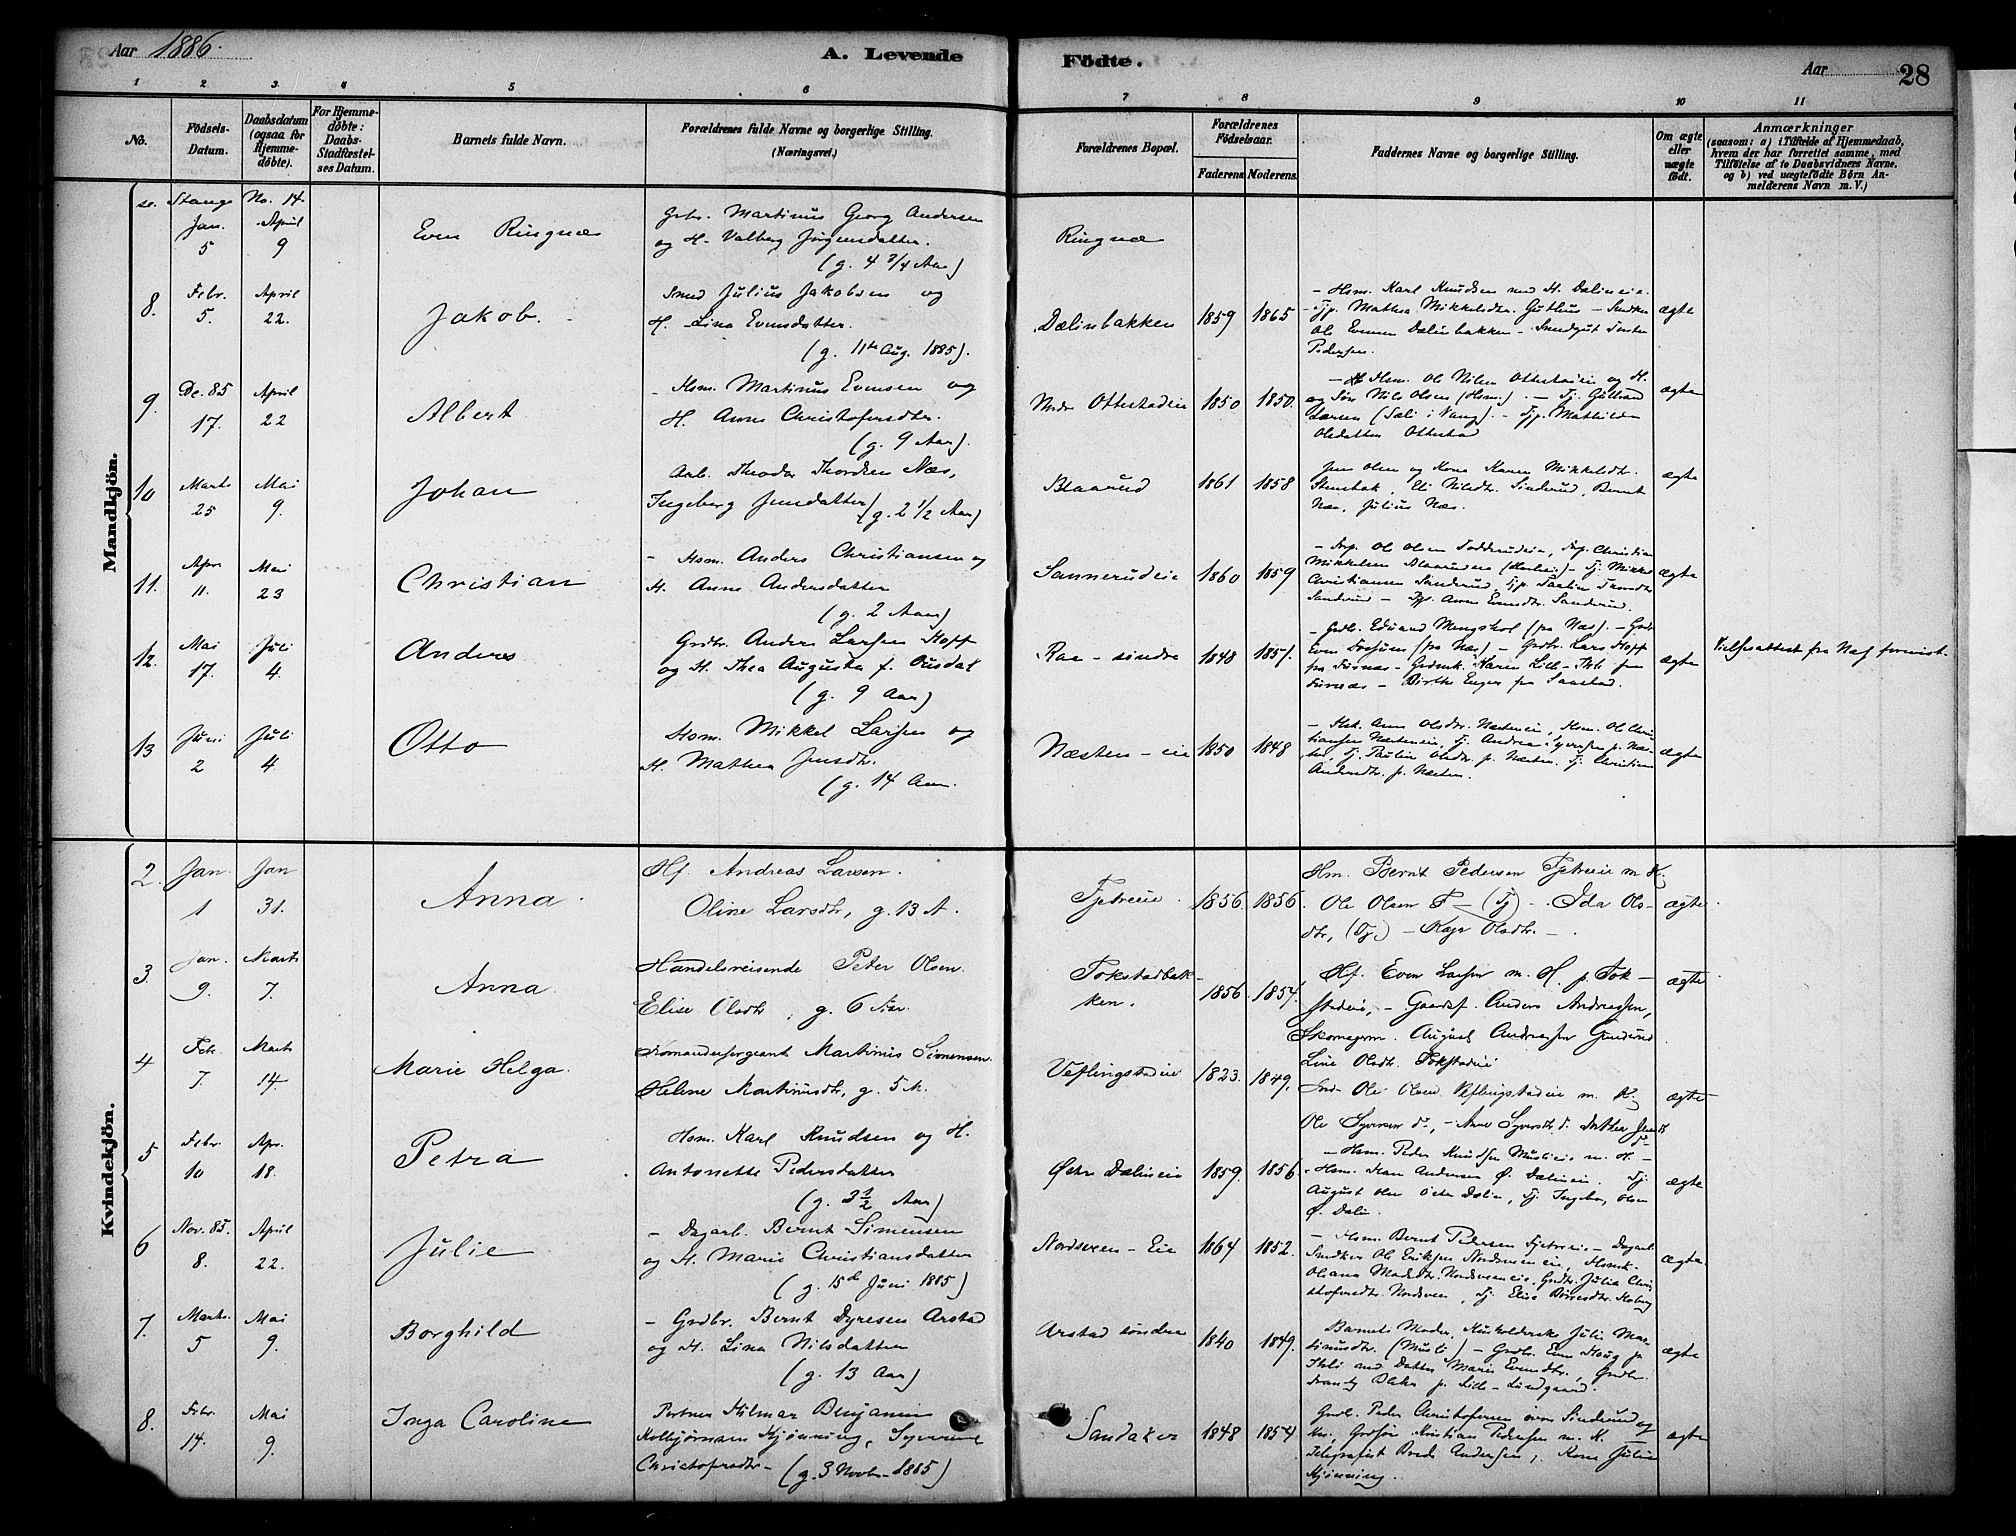 Aar 1886.
A. Levende
Födte.
Aar
28
1 2 3 4 5 6 7 8 9 10 11
No.
Födsels-
Datum.
Daabsdatum
(ogsaa for
Hjemme-
döbte).
For Hjemme-
döbte:
Daabs-
Stadfæstel-
ses Datum.
Barnets fulde Navn.
Forældrenes fulde Navne og borgerlige Stilling.
(Næringsvei.)
Forældrenes Bopæl.
Forældrenes
Födselsaar.
Faderens. Moderens.
Faddernes Navne og borgerlige Stilling.
Om ægte
eller
uægte
födt.
Anmærkninger
(saasom: a) i Tilfælde af Hjemmedaab,
hvem der har forrettet samme, med
Tilföielse af to Daabsvidners Navne,
og b) ved uægtefödte Börn An-
melderens Navn m. V.)
Mandkjön.
se. Stange No. 14.
Jan.
5
April
9
Even Ringnæs
Grbr. Martinus Georg Andersen
og H. Valberg Jørgensdatter.
(g. 4 3/4 Aar)
Ringnæs
8.
Febr.
5.
April
22.
Jakob.
Smed Julius Jakobsen og
H. Lina Evensdatter.
(g. 11te Aug. 1885).
Dælinbakken
1859
1865
- Hsm. Karl Knudsen med H. Dælineie.
- Tjp. Mathea Mikkelsdtr. Guthus - Snedker
Ol. Evensen Dælinbakken - Smedgut
Pedersen.
ægte
9.
De. 85
17.
April
22
Albert
- Hsm. Martinus Evensen og
H. Anne Christofersdtr.
(g. 9 Aar).
Nedr Ottestadeie
1850
1850.
- Hsm. Ole Nilsen Ottestadeie og H.
og Søn Nils Olsen (Hsm.). - Tj. Gulbrand
Larsen (Sæli i Vang). - Tjp. Mathilde
Olsdatter Ottestad
ægte
10
Marts
25
Mai
9.
Johan
Arb. Theodor Thordsen Næs,
Ingeborg Jensdatter (g. 2 1/2 Aar)
Blaarud
1861
1858
Jens Olsen og Kone Karen Mikkelsdtr.
Stenbæk, Eli Nilsdtr. Sinderud, Bernt
Næs, Julius Næs.
ægte
11.
Apr.
11.
Mai
23
Christian
- Hsm. Anders Christiansen og
H. Anne Andersdatter
(g. 2 Aar)
Sannerudeie
1860
1859
- Ole Olsen Christian
Mikkelsen - Tj. Mikkel
Christiansen Sanderud, Tjp.
Sanderud - Tjp. Anne Evensdtr. Sanderud.
ægte
12.
Mai
17.
Juli
4.
Anders
Grdbr. Anders Larsen Hoff
og H. Thea Augusta f. Ousdal
(g. 9 Aar)
Raa - søndre
1848
1851.
- Grdb. Eduard Mengshol (fra Næs). -
Even (fra Næs) - Grdbr. Lars Hoff
fra Furnæs - Karen Lille-
Furnæs - Birthe Enger fra Saastad.
ægte
Vielsesattest fra Næs forevist.
13
Juni
2
Juli
4.
Otto
Hsm. Mikkel Larsen og
H. Mathea Jensdtr.
(g. 14 Aar.
Næsten - eie
1850
1848
- Anne Olsdtr. Næsteneie, Hsm. Ole Chris-
tiansen Næsteneie, Tj. Andrea p. Næs-
ten, Tj. Pauline Olsdtr. p. Næsten, Tj. Christian
Andersdtr. p. Næsten.
ægte
Kvindekjön.
2.
Jan.
1
Jan
31.
Anna.
Hf. Andreas Larsen.
Oline Larsdtr, g. 13 A.
Tjetreie.
1856.
1856.
Hm. Bernt Pedersen Tjetreie m K.
Ole Olsen T - (Tj) - Ida Ols-
dtr, (Tj.) - Olsdtr. -
ægte.
3.
Jan.
9.
Marts
7.
Anna.
Handelsreisende Peter Olsen.
Elise Olsdtr, g. 6 Aar.
Tokstadbak-
ken.
1856.
1854.
Hf. Even Larsen m. H. p. Tok-
stadeie, - Gaardsf. Anders Andreassen,
Skomagerm. August Andreassen
Line Olsdtr. Tokstadeie
ægte
4
Febr.
7.
Marts
14.
Marie Helga.
Kommandersergeant Martinus Simensen.
Helene Martinusdtr, g. 5 A.
Veflingstadeie
1823.
1849.
Ole Olsen Veflingstadeie m. K.
Ole Syversen d., - Ane Syversdtr. d. Jensdtr
d-
ægte
5
Febr.
10
Apr.
18.
Petra
Hsm. Karl Knudsen og H.
Antonette Pedersdatter
(g. 3 1/2 Aar)
Østr Dælineie
1859.
1856
- Hsm. Peder Knudsen Muslieie m. H. -
- Hsm. Hans Andersen Ø. Dælineie. Tj.
August Olsen Østr Dælin, Tj. Ingeborg Olsen
Ø. Dælin.
ægte
6
Nov. 85.
8.
April
22.
Julie
- Dagarb. Bernt Simensen
og H. Marie Christiansdatter
(g. 15de Juni 1885)
Nordsveen - Eie
1864
1852.
- Hsm. Bernt Pedersen Tjetreie - Dagarb.
Snedker Ole Eriksen Nordsveneie, Hsmk.
Oliana Madsdtr. Nordsveneie, Grdtr. Julia Chris-
tofersdtr. Nordsveen, Tj. Elise
ægte.
7.
Marts.
5
Mai
9.
Borghild
- Grdbr. Bernt Dyresen Arstad
og H. Lina Nilsdatter
(g. 13 Aar)
Arstad søndre
1840
1849.
Barnets Moder, Husholderske Julie Mar-
tinusdtr. (Musli) - Grdbr. Even Houg p.
med Datter Marie Evensdtr., Grdbr.
p. Lille-Lundgaard.
ægte
8.
Febr.
14.
Mai
9.
Inga Caroline
Portner Hilmar Benjamin
Kolbjørnsen Hjønning,
Christofersdtr - (g. 3 Novbr. 1885)
Sandaker
1848
1854
Grdb. Peder Christofersen øvre Sinderud og
Kn., Kristian Pedersen m. K.
Telegrafist Andersen, Kone Julie
Hjønning.
ægte